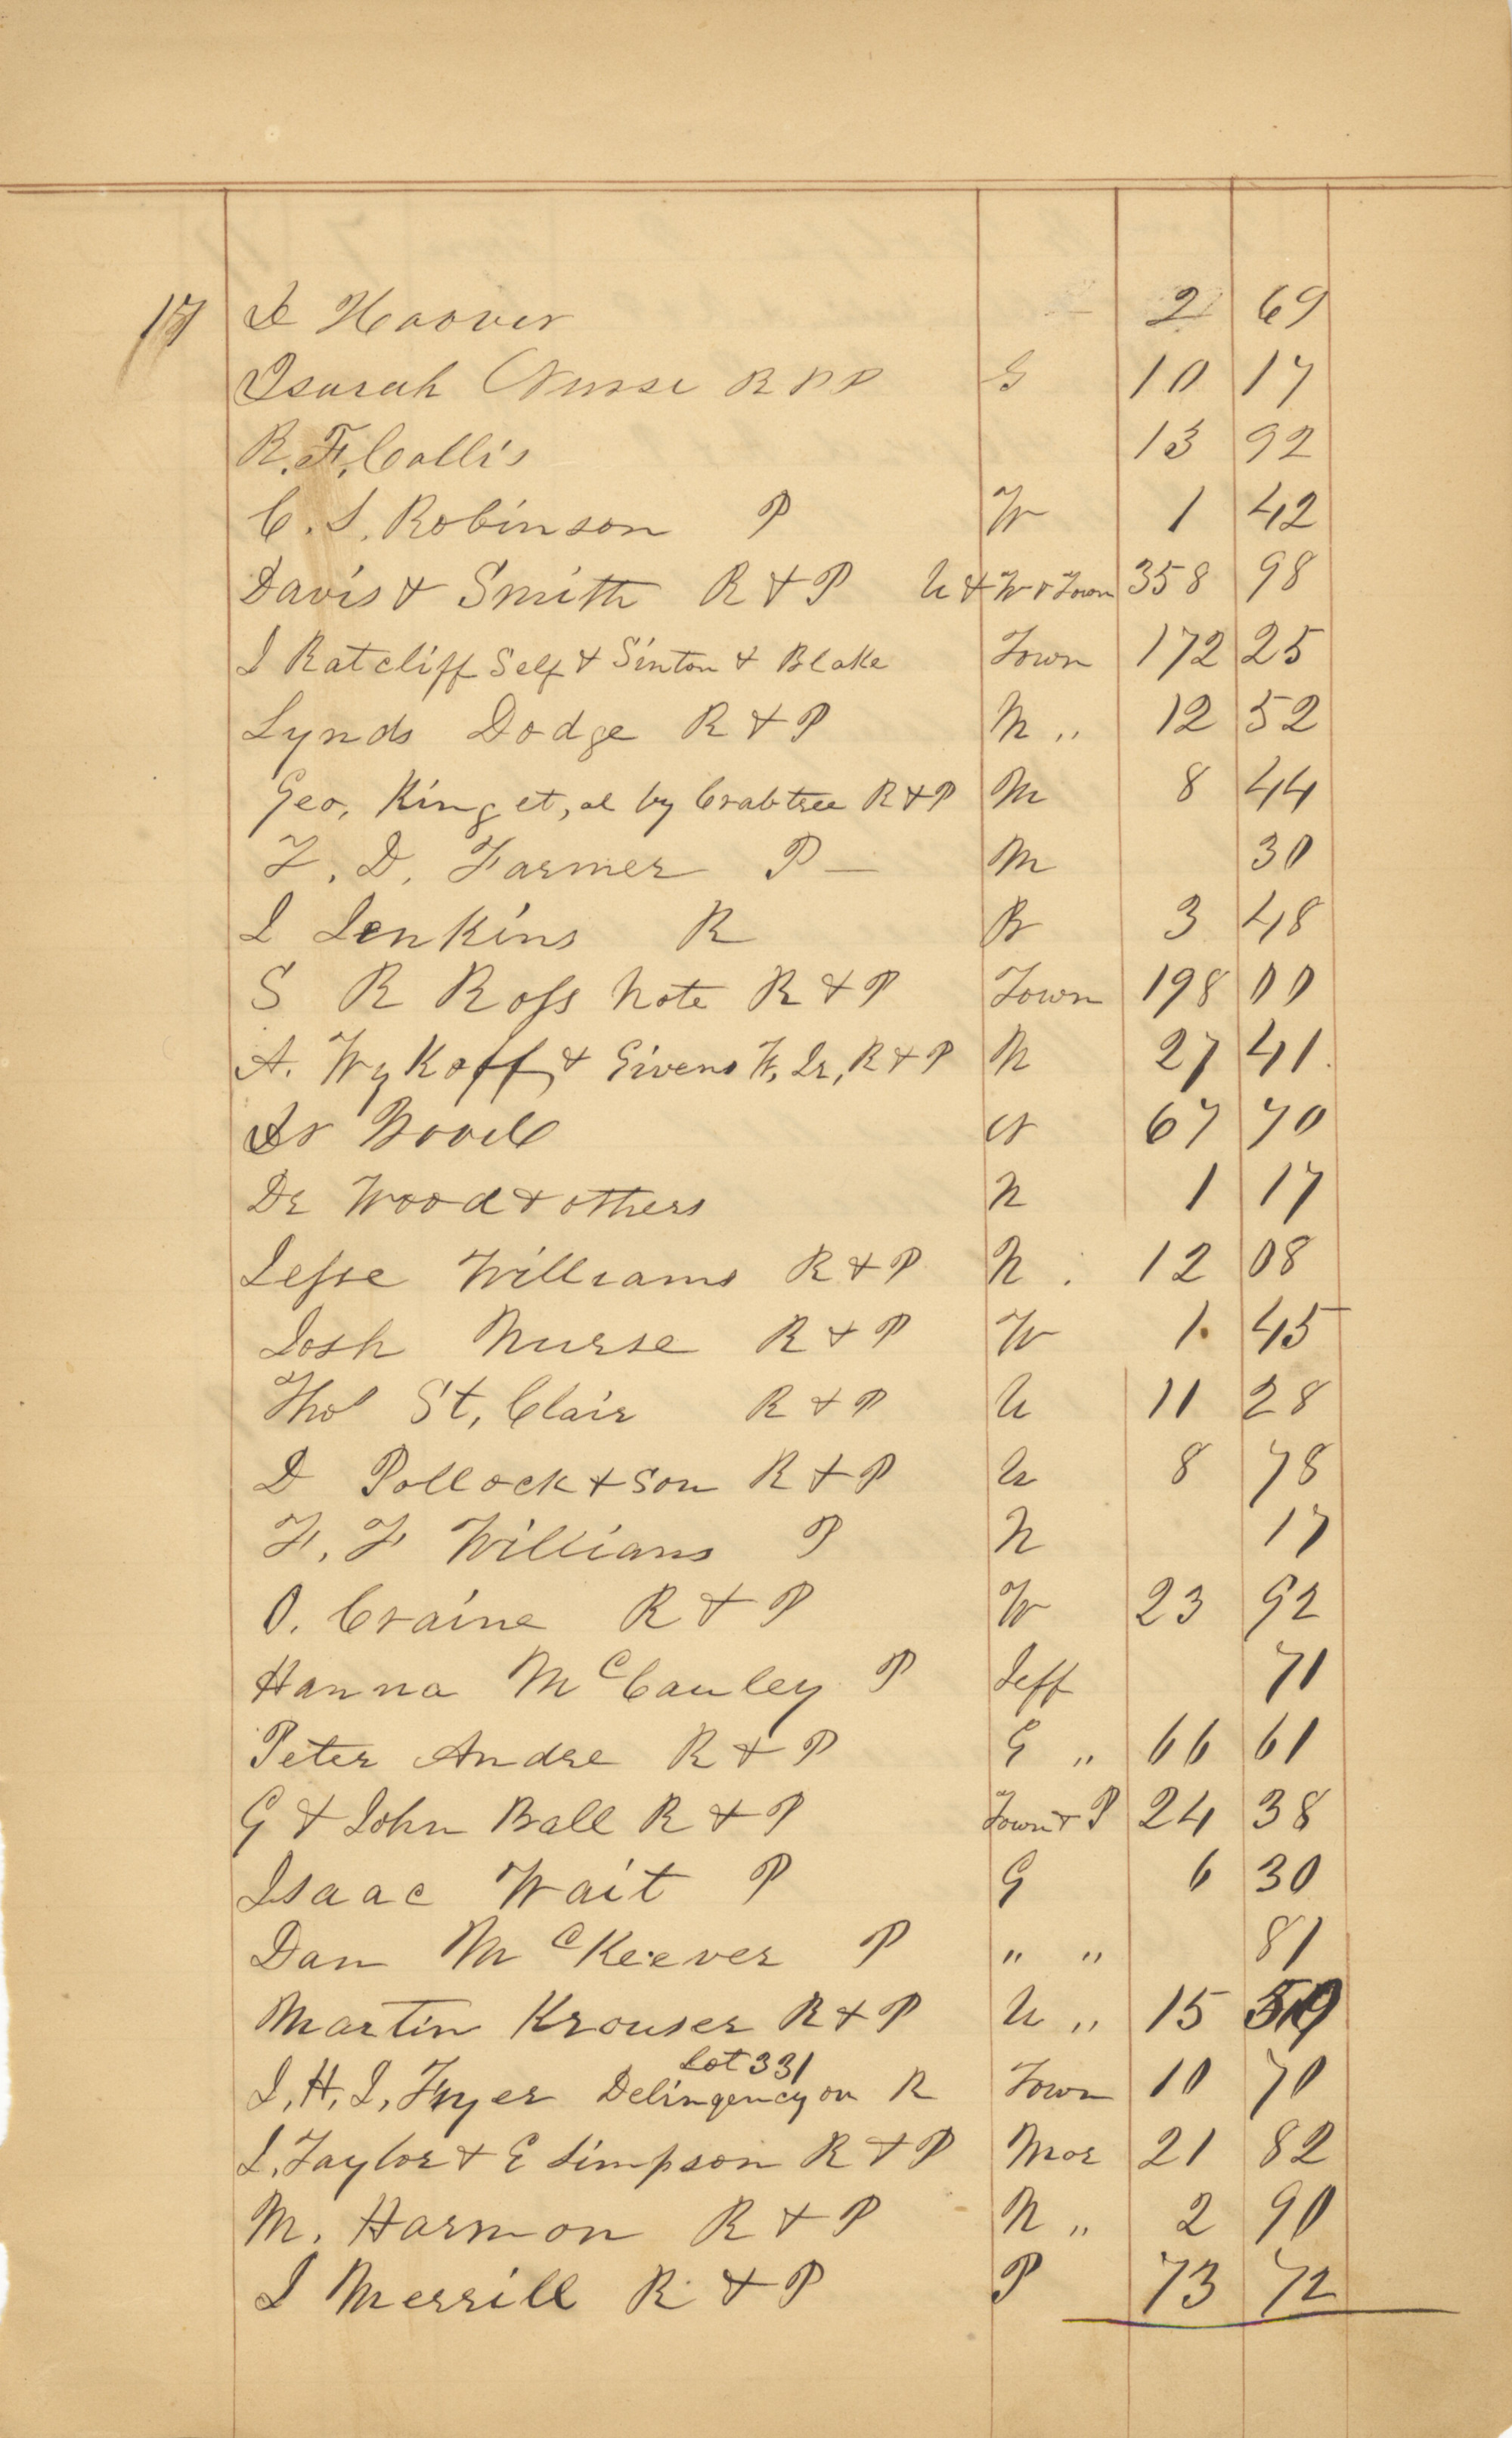 17 D Hoover 2 69
Isaiah Nurse R P P G 10 17
R. F. Collis 13 92
C. S. Robinson P W 1 42
Davis & Smith R & P U & W & Town 358 98
J Ratcliff Self & Sinton & Blake Town 172 25
Lynds Dodge R & P N " 12 52
Geo, King et, al by Crabtree R & P M 8 44
F. D. Farmer P — M 30
J Jenkins R B 3 48
S R Ross Note R & P Town 198 00
A. Wykoff & Givens W, Jr, R & P N 27 41
Dr Wood N 67 70
Dr Wood & others N 1 17
Jesse Williams R & P N 12 08
Josh Nurse R & P W 1 45
Thos St, Clair R & P U 11 28
D Pollock & Son R & P U 8 78
F. F Williams P N 17
O. Craine R & P W 23 92
Hanna McCauley P Jeff 71
Peter Andre R & P G " 66 61
G & John Ball R & P Town & P 24 38
Isaac Wait P G 6 30
Dan McKeever P " " 81
Martin Krouser R & P U " 15
Lot 331
J, H, J, Fryer Delinqency on R Town 10 70
J. Taylor & E Simpson R & P Mor 21 82
M. Harmon R & P N " 2 90
J Merrill R & P P 73 72